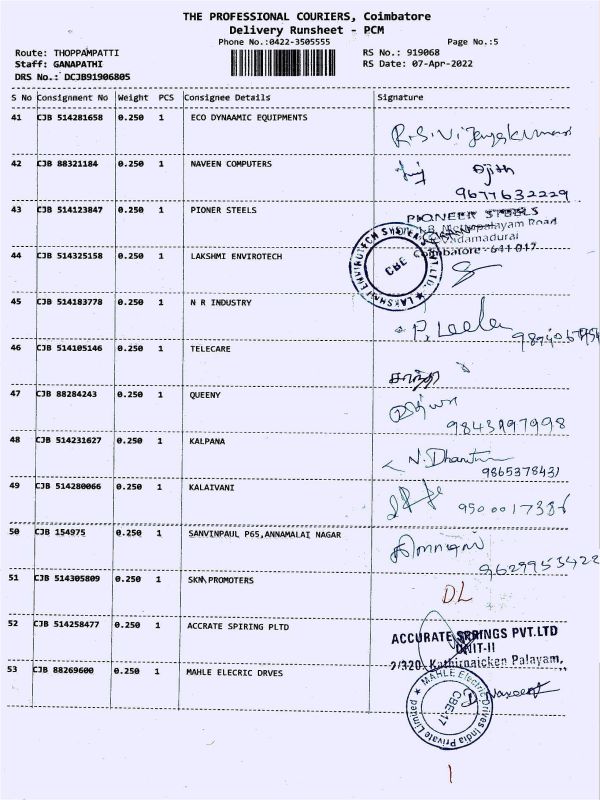 THE PROFESSIONAL COURIERS, Coimbatore
Delivery Runsheet - PCM
Phone No.:0422-3505555 Page No.:5
Route: THOPPAMPATTI RS No.: 919068
Staff: GANAPATHI RS Date: 07-Apr-2022
DRS No.: DCJB91906805
S No Consignment No Weight PCS Consignee Details Signature
41 CJB 514281658 0.250 1 ECO DYNAAMIC EQUIPMENTS
R.S.Vijayakumar
42 CJB 88321184 0.250 1 NAVEEN COMPUTERS
9677632229
43 CJB 514123847 0.250 1 PIONER STEELS
PIONEER STEELS
Vadamadurai
Coimbatore - 641 017
44 CJB 514325158 0.250 1 LAKSHMI ENVIROTECH
LAKSHMI ENVIROTECH SYSTEMS
CBE
45 CJB 514183778 0.250 1 N R INDUSTRY
P. Leela
46 CJB 514105146 0.250 1 TELECARE
47 CJB 88284243 0.250 1 QUEENY
48 CJB 514231627 0.250 1 KALPANA
N. Dhanu
49 CJB 514280066 0.250 1 KALAIVANI
50 CJB 154975 0.250 1 SANVINPAUL P65,ANNAMALAI NAGAR
51 CJB 514305809 0.250 1 SKM PROMOTERS
DL
52 CJB 514258477 0.250 1 ACCRATE SPIRING PLTD
ACCURATE SPRINGS PVT.LTD
UNIT-II
2/320, Kathirnaicken Palayam,
53 CJB 88269600 0.250 1 MAHLE ELECRIC DRVES
MAHLE Electric Drives India Private Limited
CBE-17